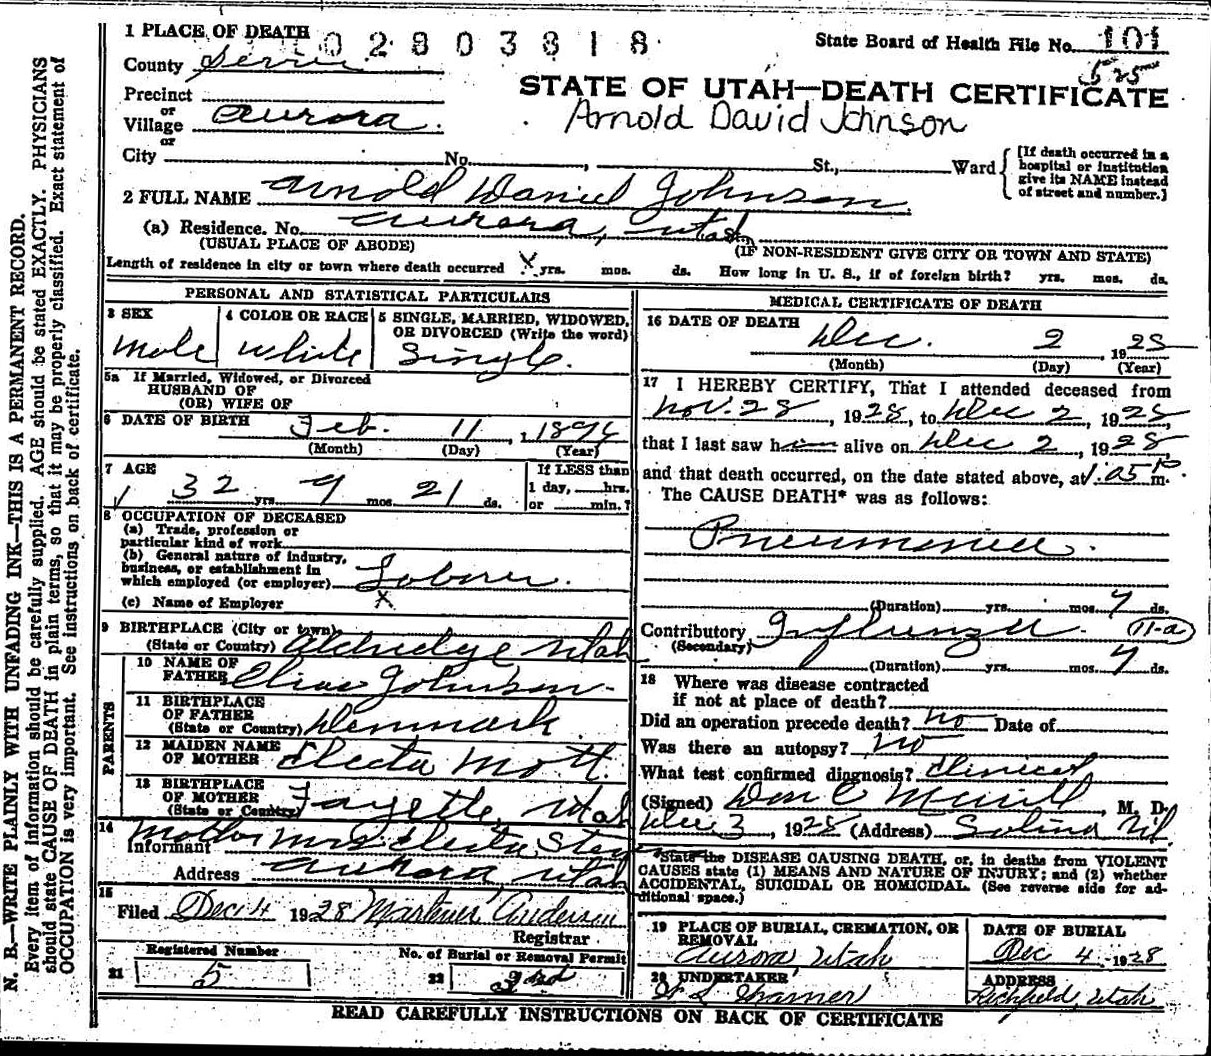 1 PLACE OF DEATH
02803818
State Board of Health File No. 101
525
County Sevier
STATE OF UTAH—DEATH CERTIFICATE
Precinct
or
Village Aurora.
Arnold David Johnson
or
City No. , St., Ward
[If death occurred in a hospital or institution give its NAME instead of street and number.]
2 FULL NAME Arnold Daniel Johnson
(a) Residence. No. Aurora, Utah
(USUAL PLACE OF ABODE) (IF NON-RESIDENT GIVE CITY OR TOWN AND STATE)
Length of residence in city or town where death occurred X yrs. mos. ds. How long in U. S., if of foreign birth? yrs. mos. ds.
PERSONAL AND STATISTICAL PARTICULARS
3 SEX
Male
4 COLOR OR RACE
White
5 SINGLE, MARRIED, WIDOWED,
OR DIVORCED (Write the word)
Single.
5a If Married, Widowed, or Divorced
HUSBAND OF
(OR) WIFE OF
6 DATE OF BIRTH Feb. 11, 189
(Month) (Day) (Year)
7 AGE
32 yrs. 9 mos. 21 ds.
If LESS than
1 day, hrs.
or min.?
8 OCCUPATION OF DECEASED
(a) Trade, profession or
particular kind of work
(b) General nature of industry,
business, or establishment in
which employed (or employer) Laborer.
(c) Name of Employer X
9 BIRTHPLACE (City or town)
(State or Country) Utah
PARENTS
10 NAME OF
FATHER Elias Johnson
11 BIRTHPLACE
OF FATHER
(State or Country) Denmark
12 MAIDEN NAME
OF MOTHER Electa Mott.
13 BIRTHPLACE
OF MOTHER
(State or Country) Fayette, Utah
14 Mother
Informant Mrs. Electa
Address Aurora Utah
15
Filed Dec 4 1928 Anderson
Registrar
Registered Number
21 5
No. of Burial or Removal Permit
22 3rd
MEDICAL CERTIFICATE OF DEATH
16 DATE OF DEATH
Dec. 2, 1928
(Month) (Day) (Year)
17 I HEREBY CERTIFY, That I attended deceased from
Nov. 28, 1928, to Dec 2, 1928,
that I last saw him alive on Dec 2, 1928
and that death occurred, on the date stated above, at 1.05 P m.
The CAUSE DEATH* was as follows:
Pneumonia.
(Duration) yrs. mos. 7 ds.
Contributory Influenza. 11-a
(Secondary)
(Duration) yrs. mos. 7 ds.
18 Where was disease contracted
if not at place of death?
Did an operation precede death? No Date of
Was there an autopsy? No
What test confirmed diagnosis? Clinical
(Signed) Don C Merrill, M. D.
Dec 3, 1928 (Address) Salina
*State the DISEASE CAUSING DEATH, or, in deaths from VIOLENT
CAUSES state (1) MEANS AND NATURE OF INJURY; and (2) whether
ACCIDENTAL, SUICIDAL OR HOMICIDAL. (See reverse side for ad-
ditional space.)
19 PLACE OF BURIAL, CREMATION, OR
REMOVAL
Aurora Utah
DATE OF BURIAL
Dec 4 1928
20 UNDERTAKER
ADDRESS
Richfield, Utah
READ CAREFULLY INSTRUCTIONS ON BACK OF CERTIFICATE
N. B.—WRITE PLAINLY WITH UNFADING INK—THIS IS A PERMANENT RECORD.
Every item of information should be carefully supplied. AGE should be stated EXACTLY. PHYSICIANS
should state CAUSE OF DEATH in plain terms, so that it may be properly classified. Exact statement of
OCCUPATION is very important. See instructions on back of certificate.